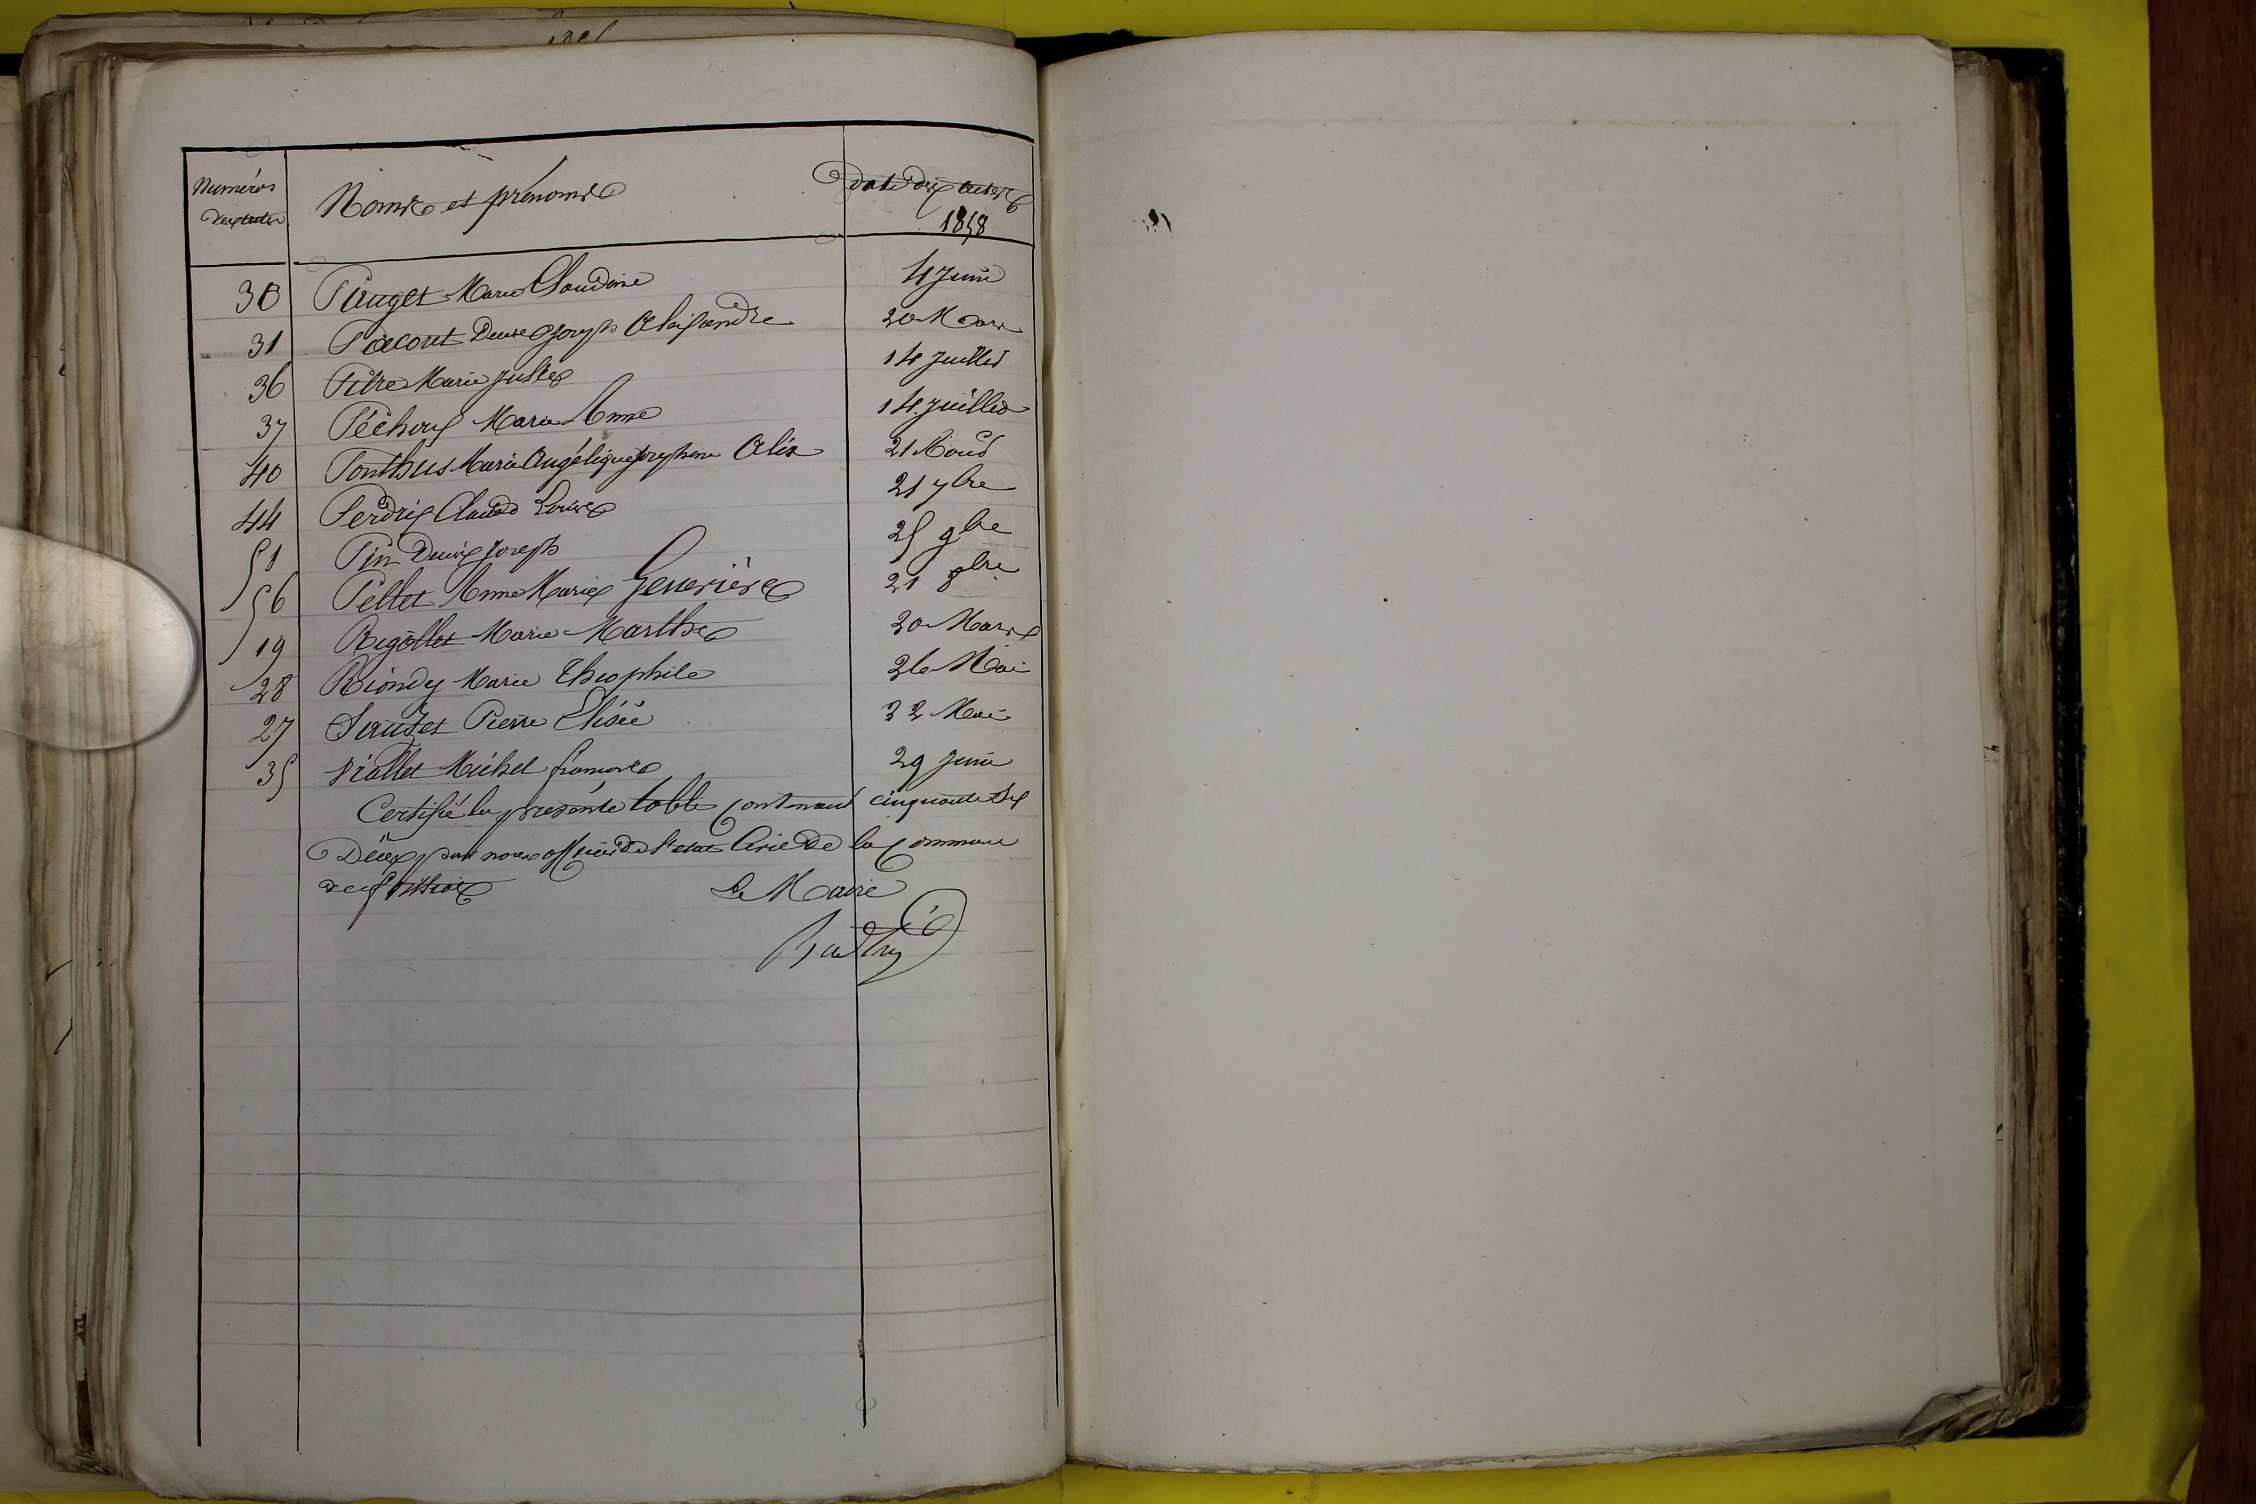 Numéros des actes | Noms et prénoms | dates des actes 1858
30 Pauget Marie Claudine 4 Juin
31 Pacoret Denis Joseph Alexandre 20 Mars
36 Pitre Marie Juste 14 Juillet
37 Péchoux Marie Anne 14 Juillet
40 Ponthus Marie Angélique Josephine Alix 21 Aout
44 Perdrix Claude Louise 21 7bre
51 Pin Denis Joseph 25 9bre
56 Pellet Anne Marie Geneviève 21 8bre
19 Rigollet Marie Marthe 30 Mars
28 Riondy Marie Théophile 26 Mai
27 Sauzet Pierre Elisée 22 Mai
35 Viallet Michel françois 29 Juin
Certifié la présente table contenant cinquante six
par nous officier de l'etat Civil de la Commune
Le Maire